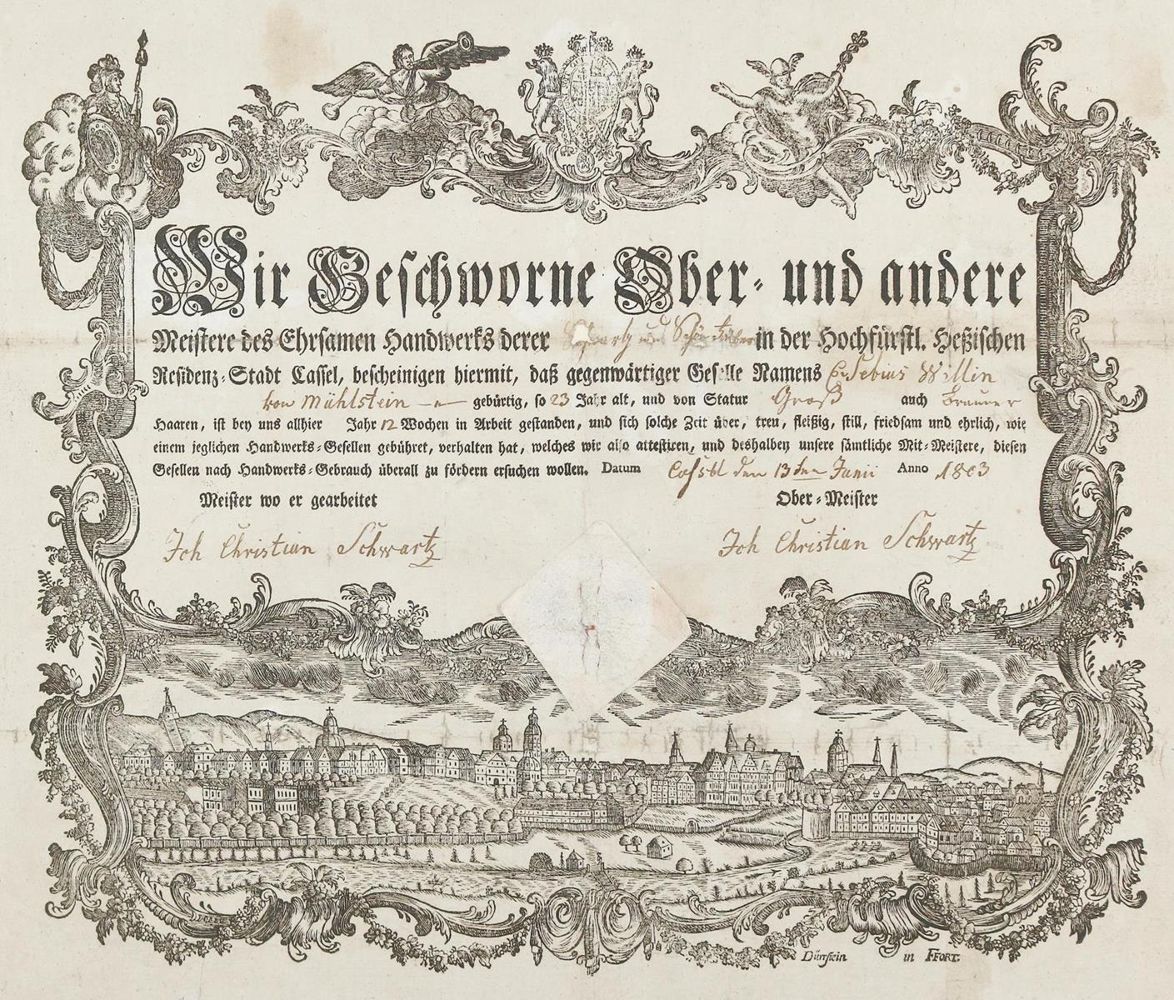 Wir Geschworne Ober- und andere
Meistere des Ehrsamen Handwerks derer Schwartz und Schön Färber in der Hochfürstl. Heßischen
Residenz-Stadt Cassel, bescheinigen hiermit, daß gegenwärtiger Geselle Namens Eusebius Willin
von Mühlstein gebürtig, so 23 Jahr alt, und von Statur Groß auch Brauner
Haaren, ist bey uns allhier Jahr 12 Wochen in Arbeit gestanden, und sich solche Zeit über, treu, fleißig, still, friedsam und ehrlich, wie
einem jeglichen Handwerks-Gesellen gebühret, verhalten hat, welches wir also attestiren, und deshalben unsere sämtliche Mit-Meistere, diesen
Gesellen nach Handwerks-Gebrauch überall zu fördern ersuchen wollen. Datum Cassel den 13ten Junii Anno 1803
Meister wo er gearbeitet Ober-Meister
Joh Christian Schwartz Joh Christian Schwartz
Dürrstein in FFORT.